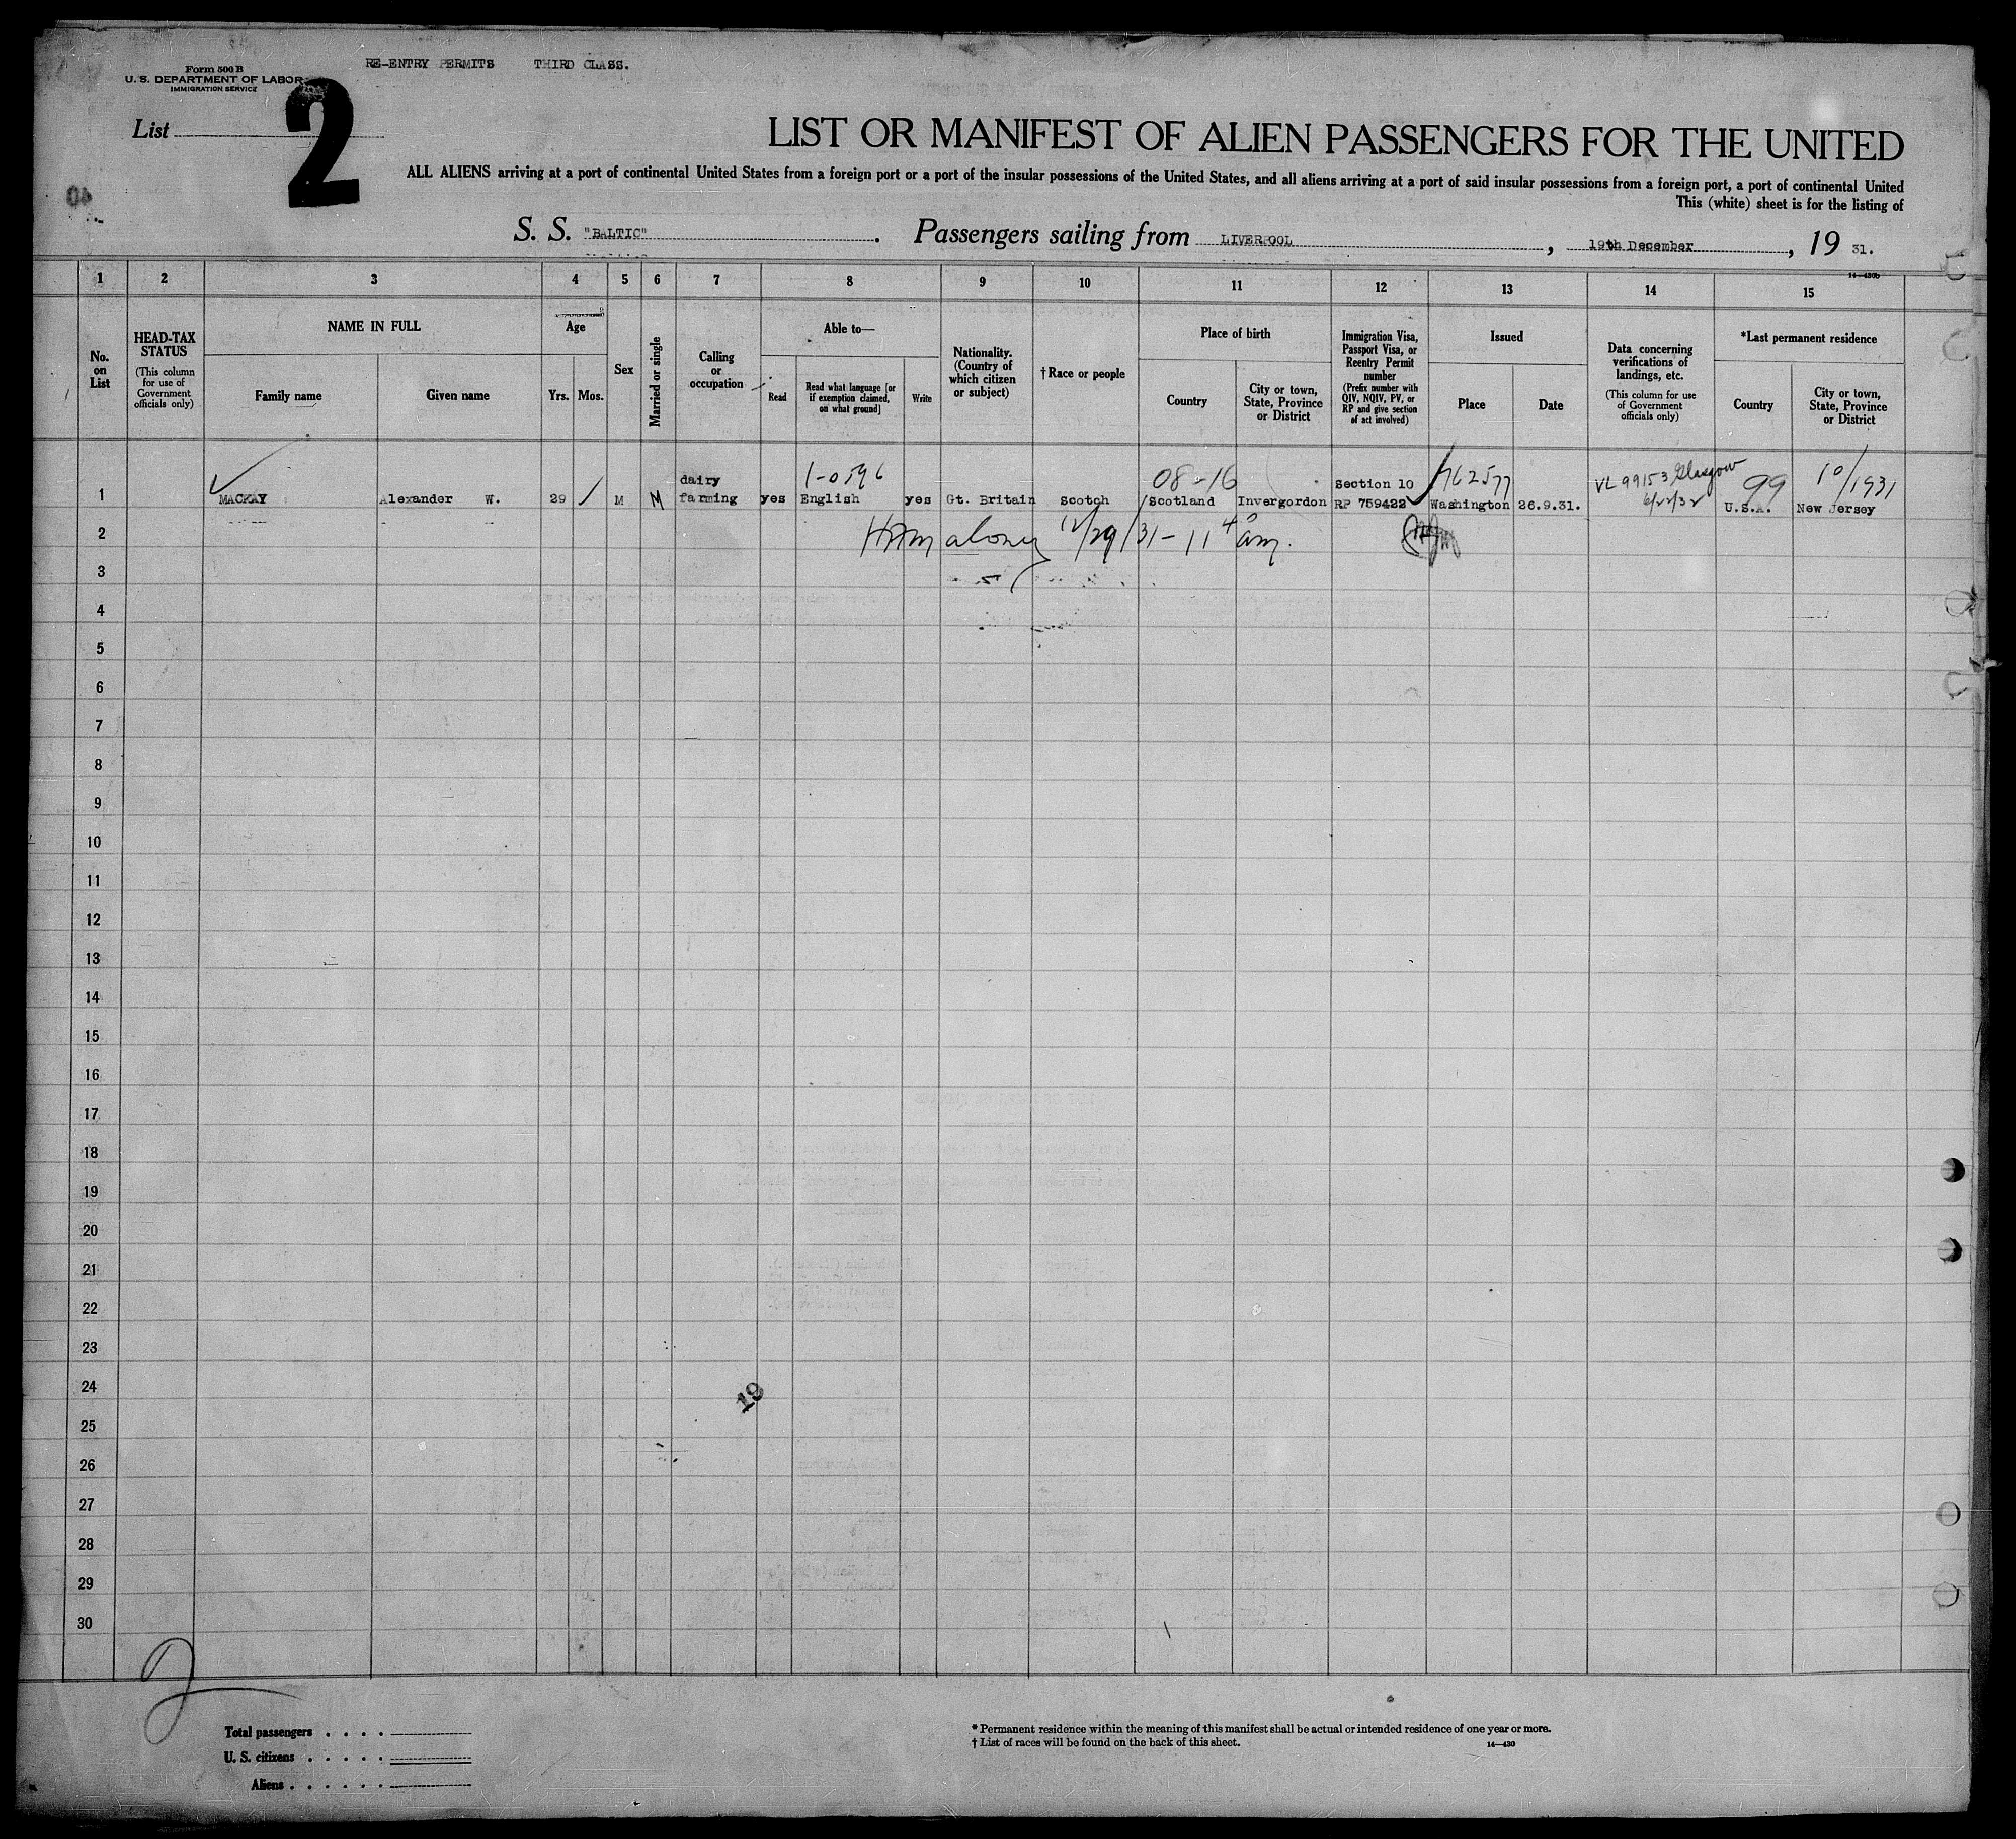 RE-ENTRY PERMITS THIRD CLASS.
Form 500 B
U. S. DEPARTMENT OF LABOR
IMMIGRATION SERVICE
List 2
LIST OR MANIFEST OF ALIEN PASSENGERS FOR THE UNITED
ALL ALIENS arriving at a port of continental United States from a foreign port or a port of the insular possessions of the United States, and all aliens arriving at a port of said insular possessions from a foreign port, a port of continental United
This (white) sheet is for the listing of
S. S. "BALTIC". Passengers sailing from LIVERPOOL, 19th December, 19 31.
14—430b
1 2 3 4 5 6 7 8 9 10 11 12 13 14 15
No. on List
HEAD-TAX STATUS
(This column for use of Government officials only)
NAME IN FULL
Family name
Given name
Age
Yrs. Mos.
Sex
Married or single
Calling or occupation
Able to—
Read
Read what language [or if exemption claimed, on what ground]
Write
Nationality. (Country of which citizen or subject)
† Race or people
Place of birth
Country
City or town, State, Province or District
Immigration Visa, Passport Visa, or Reentry Permit number
(Prefix number with QIV, NQIV, PV, or RP and give section of act involved)
Issued
Place
Date
Data concerning verifications of landings, etc.
(This column for use of Government officials only)
*Last permanent residence
Country
City or town, State, Province or District
dairy 1-0596 08-16 Section 10 762577 VL 99153 Glasgow 99 10/1931
1 MACKAY Alexander W. 29 M M farming yes English yes Gt. Britain Scotch Scotland Invergordon RP 759422 Washington 26.9.31. 6/22/32 U.S.A. New Jersey
2 12/29/31 - 11 40 am.
3
4
5
6
7
8
9
10
11
12
13
14
15
16
17
18
19
20
21
22
23
24
19
25
26
27
28
29
30
Total passengers . . . .
U. S. citizens . . . . .
Aliens . . . . . .
* Permanent residence within the meaning of this manifest shall be actual or intended residence of one year or more.
† List of races will be found on the back of this sheet.
14—430